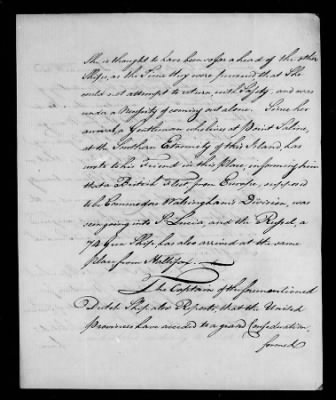 She is thought to have been so far a head of the other
Ships, at the Time they were pursued that She
could not attempt to return, with Safety, and was
under a Necessity of coming out alone. Since her
arrival, a Gentleman who lives at Point Saline,
at the Southern Extremity of this Island, has
wrote to his Friend in this place, informing him
that a British Fleet from Europe, supposed
to be Commodore Walsingham's Division, was
seen going into St Lucia, and the Russel, a
74 Gun Ship, has also arrived at the same
Place from Hallifax.
The Captain of the forementioned
Dutch Ship also Reports, that the United
Provinces have acceded to a grand Confederation
formed